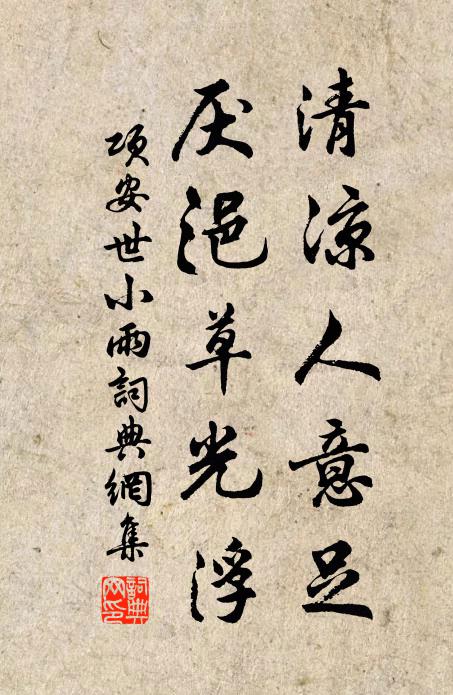 清涼人意足
厌浥草光浮
項安世小雨詞典網集
詞典网印